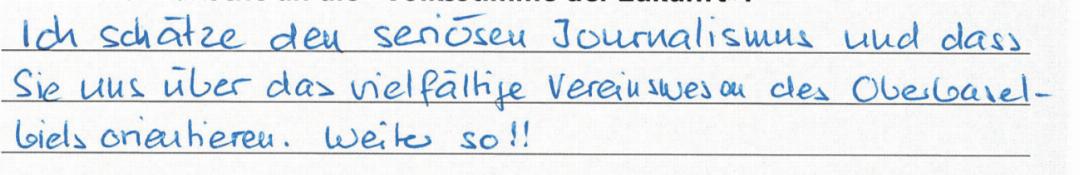 Ich schätze den seriösen Journalismus und dass
Sie uns über das vielfältige Vereinswesen des Oberbasel-
biets orientieren. Weiter so!!